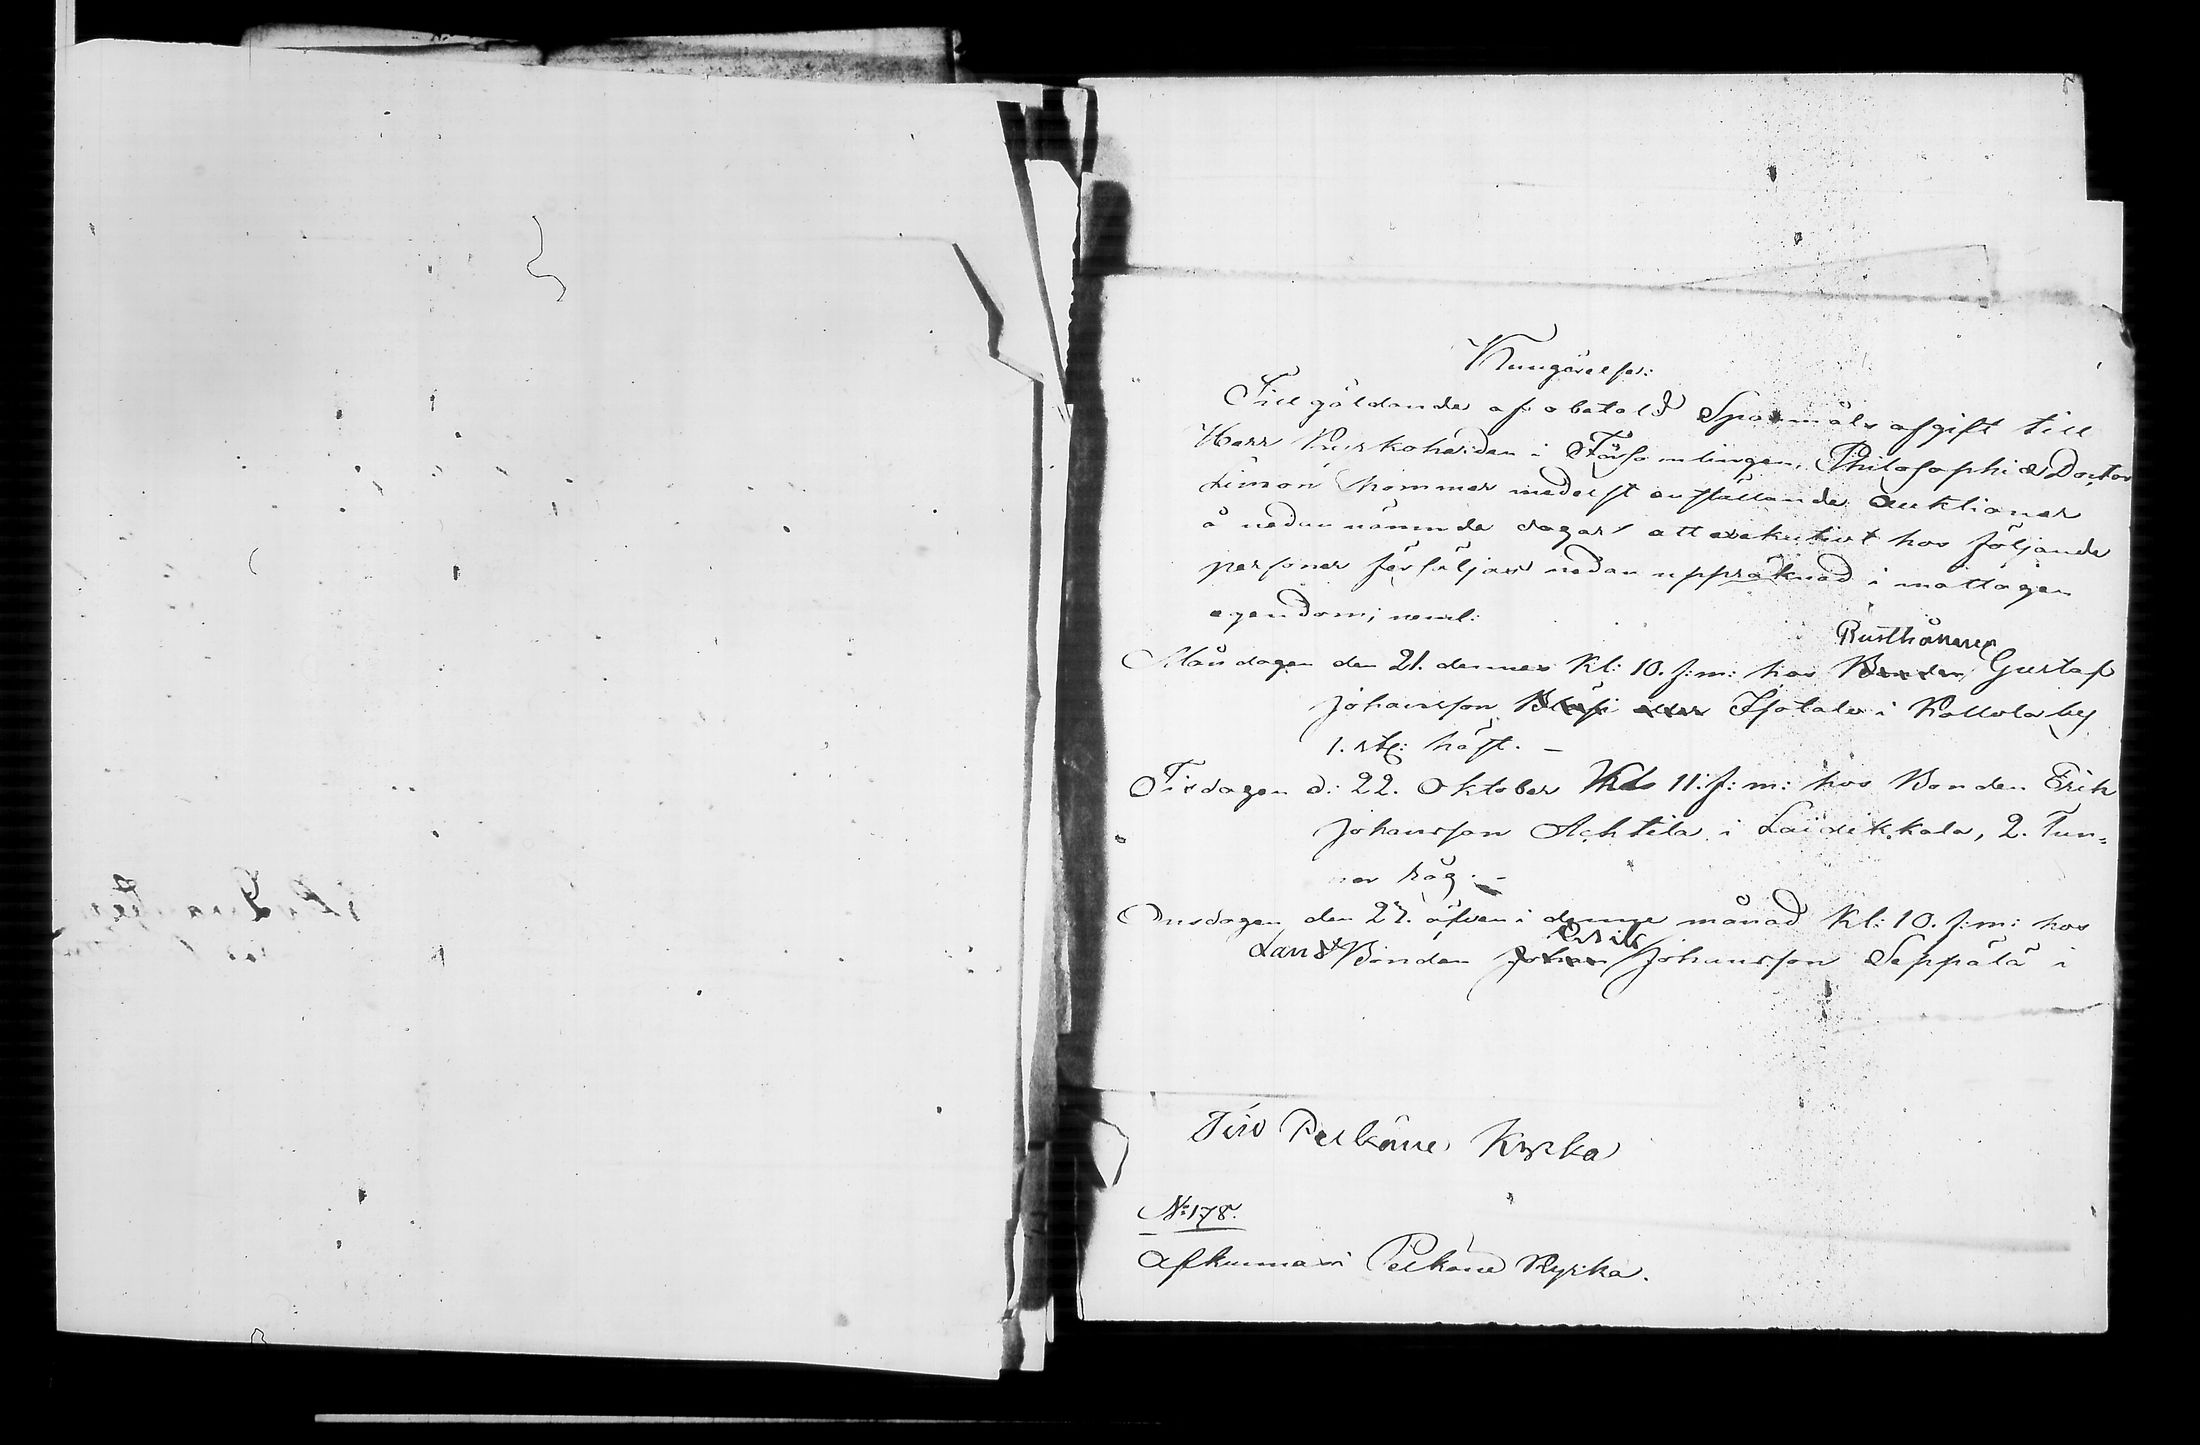 Kungörelse:
Till gäldande af obetald Spanmåls afgift till
Herr Kyrkoherden i Församlingen, Philosophiæ Doctor
Limon kommer medelst anställande auktioner
å nedannämnde dagar att exekutivt hos följande
personer försäljas nedan uppräknad i mattagen
egendom; neml:
Rusthållaren
Måndagen den 21. dennes Kl: 10. f:m: hos Bonden Gustaf
Johansson eller Isotalo i Kollola by
1. st: häst. –
Tisdagen d: 22. Oktober Kl: 11: f: m: hos Bonden Erik
Johansson Achtila i Laidikkala, 2. Tun-
nor råg. –
Onsdagen den 23. äfven i denne månad Kl: 10. f:m: hos
Erik
Landtbonden Johan Johansson Seppälä i
Till Pelkäne Kyrka
No 178.
Afkunnas i Pelkäne Kyrka.